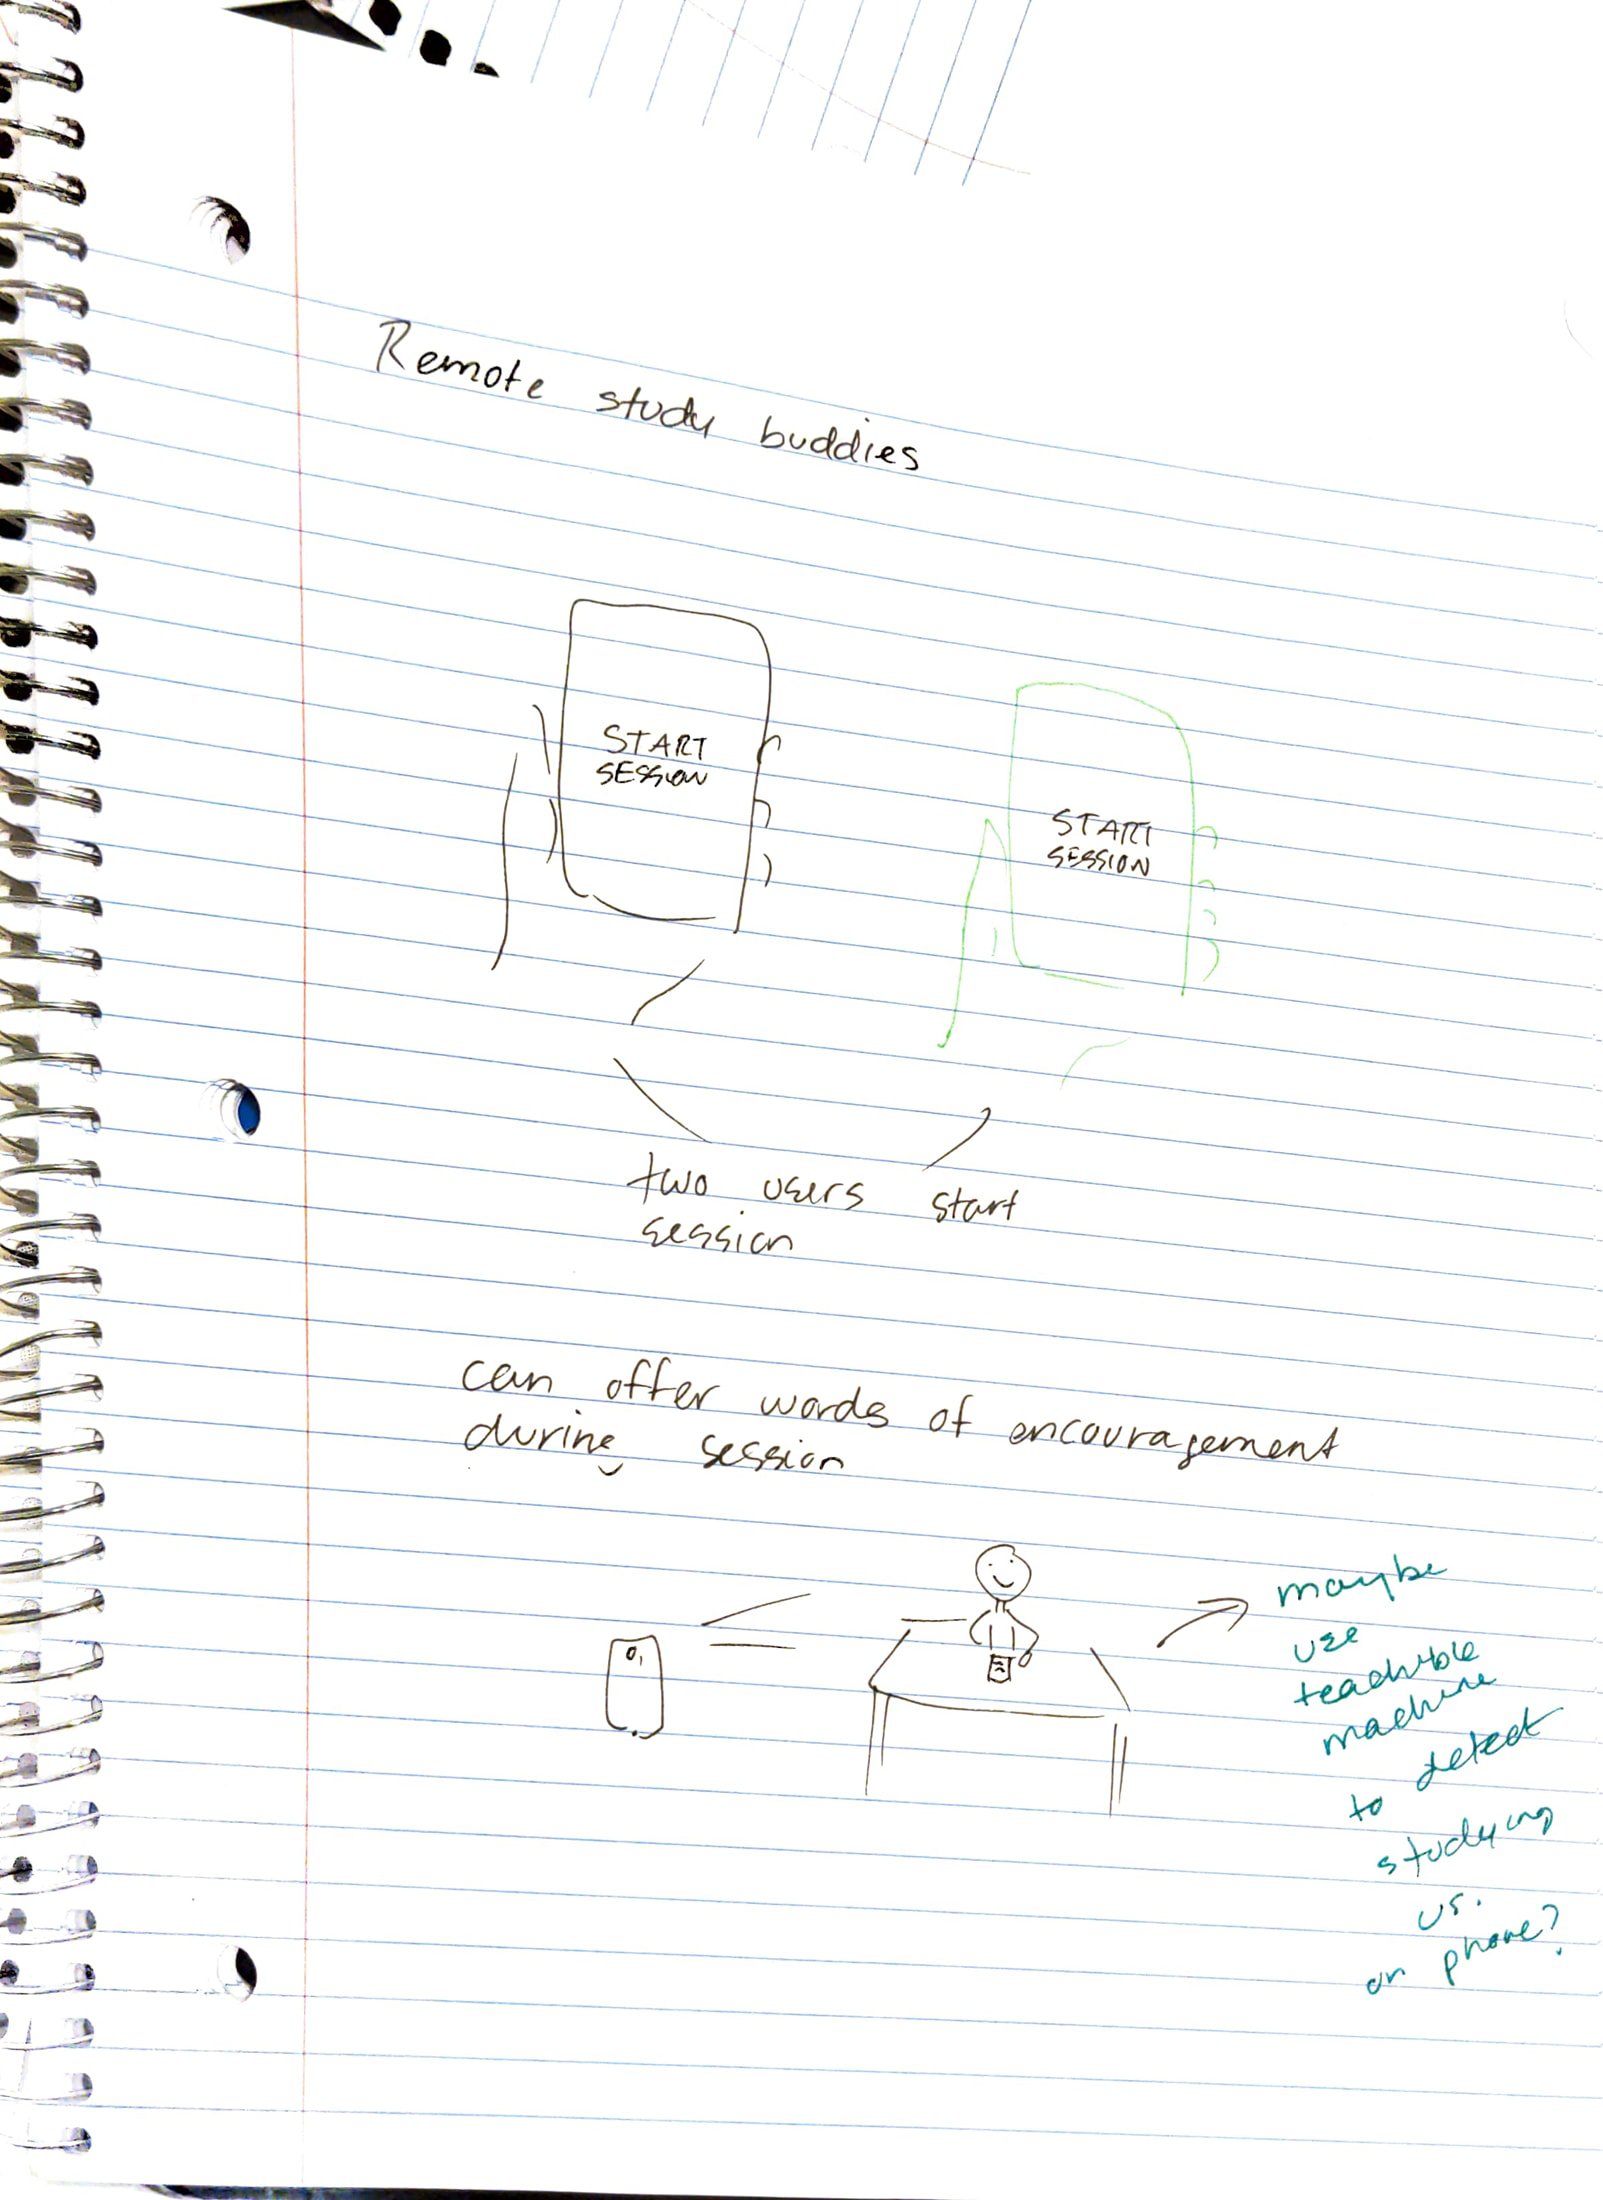 Remote study buddies
START
SESSION
START
SESSION
two users start
session
can offer words of encouragement
during session
maybe
use
teachable
machine
to detect
studying
vs.
on phone?